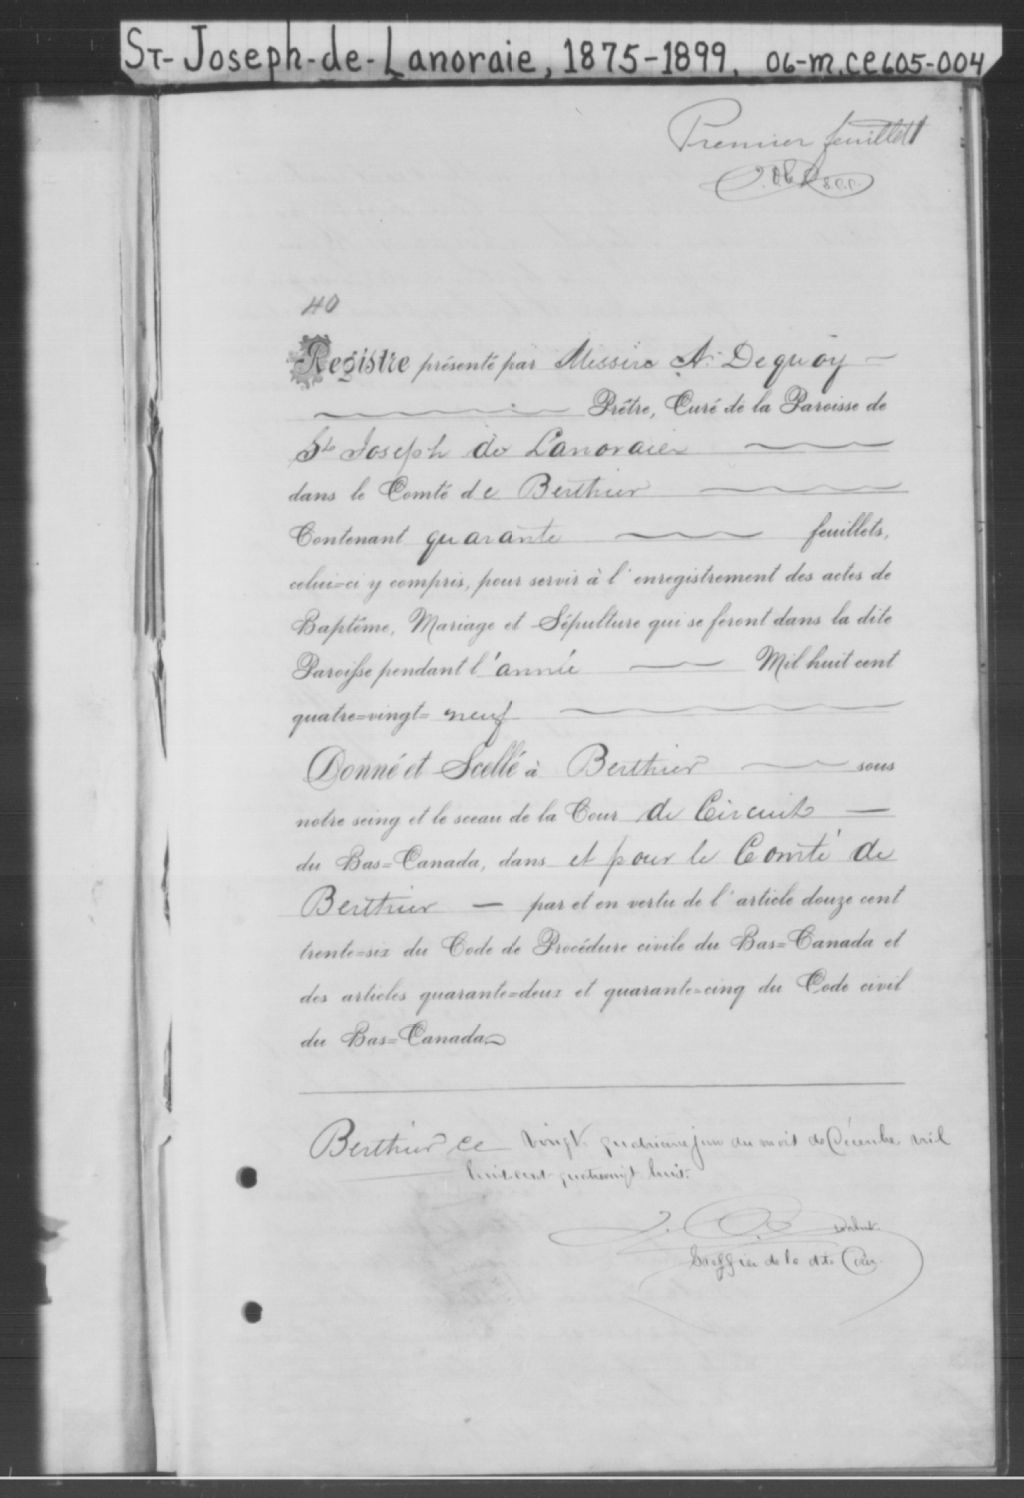 St-Joseph-de-Lanoraie, 1875-1899, 06-M.CE605-004
Premier feuillet
40
Registre présenté par Messire A. Dequoy
Prêtre, Curé de la Paroisse de
St Joseph de Lanoraie
dans le Comté de Berthier
Contenant quarante feuillets,
celui=ci y compris, pour servir à l'enregistrement des actes de
Baptême, Mariage et Sépulture qui se feront dans la dite
Paroisse pendant l'année Mil huit cent
quatre=vingt= neuf
Donné et Scellé à Berthier sous
notre seing et le sceau de la Cour de Circuit
du Bas=Canada, dans et pour le Comté de
Berthier par et en vertu de l'article douze cent
trente=six du Code de Procédure civile du Bas=Canada et
des articles quarante=deux et quarante=cinq du Code civil
du Bas=Canada
Berthier ce vingt quatrième jour du mois de Décembre mil
huit cent quatrevingt huit.
Greffier de la dite Cour.